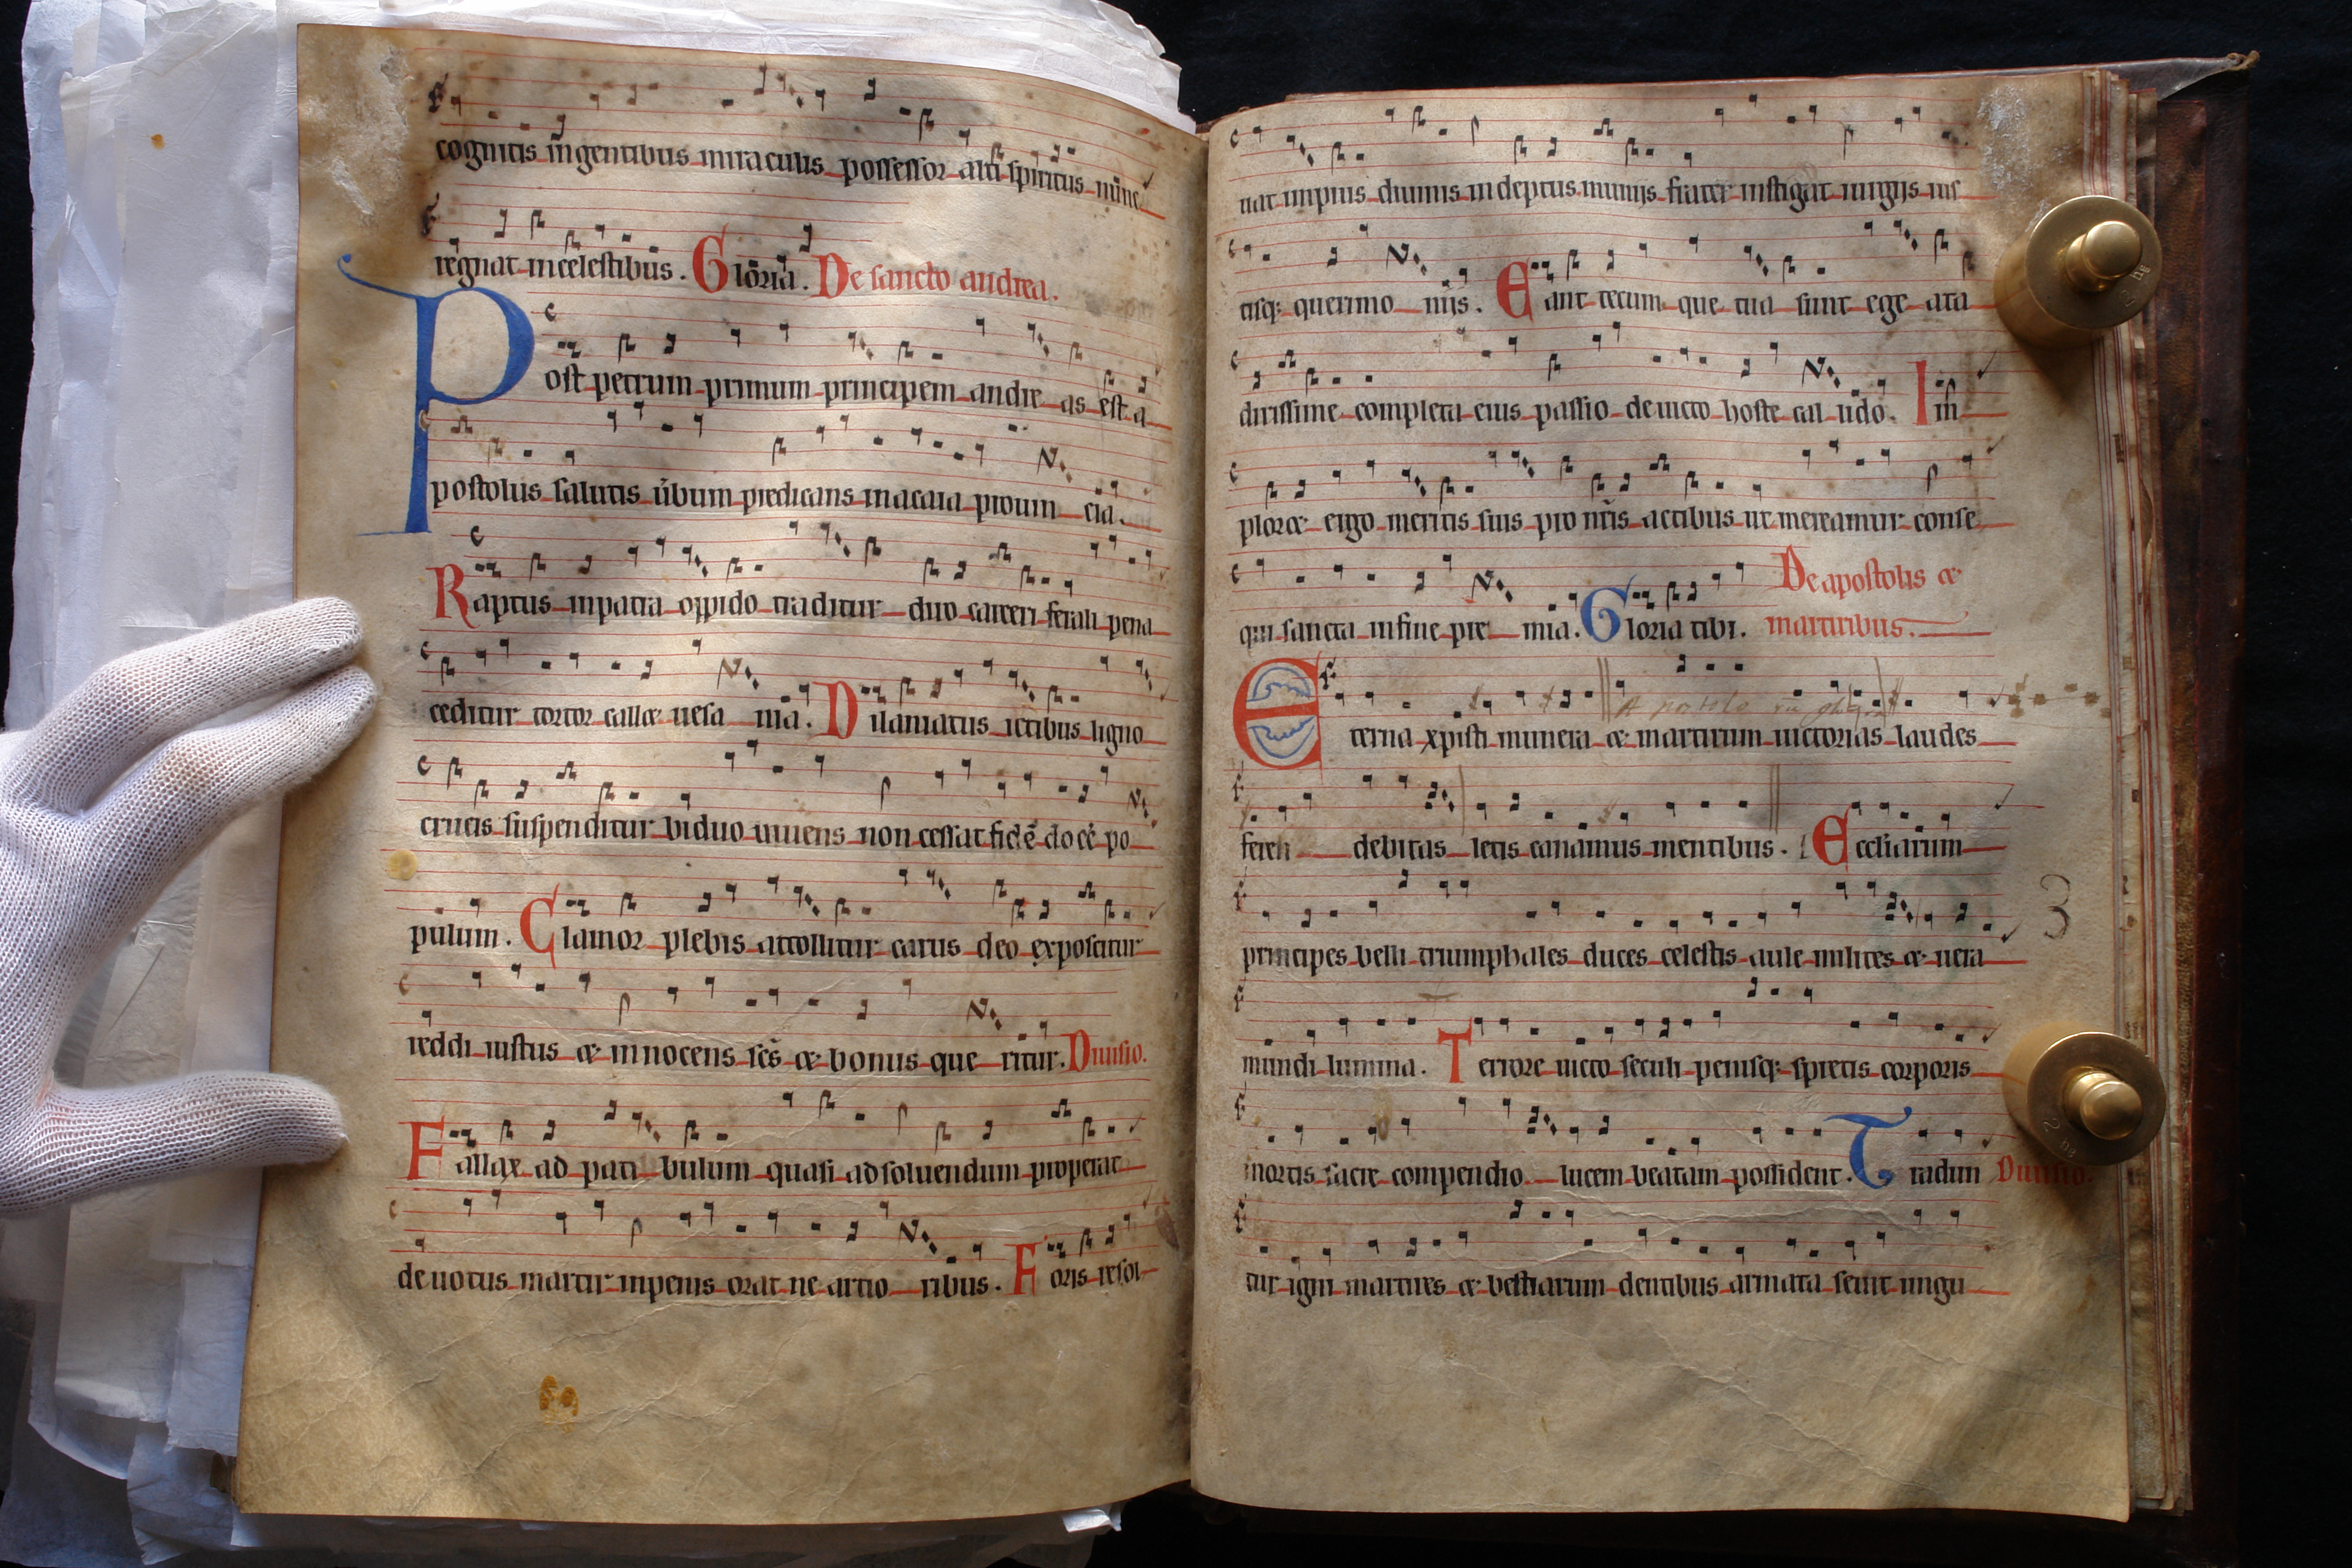 cognitis ingentibus miraculis possessor alti spiritus nunc
regnat in celestibus. Gloria. De sancto andrea.
Post petrum primum principem andreas est a
postolus salutis ùbum predicans in acaia prouincia.
Raptus in patra oppido traditur duo carceri ferali pena
ceditur tortor callet uesania. Dilaniatus ictibus ligno
crucis suspenditur biduo uiuens non cessat fidē docē po
pulum. Clamor plebis attollitur carus deo exposcitur
reddi iustus et innocens scs̄ et bonus queritur. Diuisio.
Fallax ad patibulum quasi ad soluendum properat
deuotus martir in penis orat ne a tortoribus. Foris resol
uat impius diuinis indeptus munijs frater instigat iurgijs
tisq; querimonijs. Eant tecum que tua sunt egeata
dirissime completa eius passio deuicto hoste callido. Im
ploret ergo meritis suis pro nr̄is actibus ut mereamur conse
qui sancta in fine premia. Gloria tibi. De apostolis et
martiribus.
Eterna xpisti munera et martirum uictorias laudes
feren debitas letis canamus mentibus. Eccliarum
3
principes belli triumphales duces celestis aule milites et uera
mundi lumina. Terrore uicto seculi penisq; spretis corporis
mortis sacre compendio lucem beatam possident. Tradun Diuisio.
tur igni martires et bestiarum dentibus armata seuit ungu